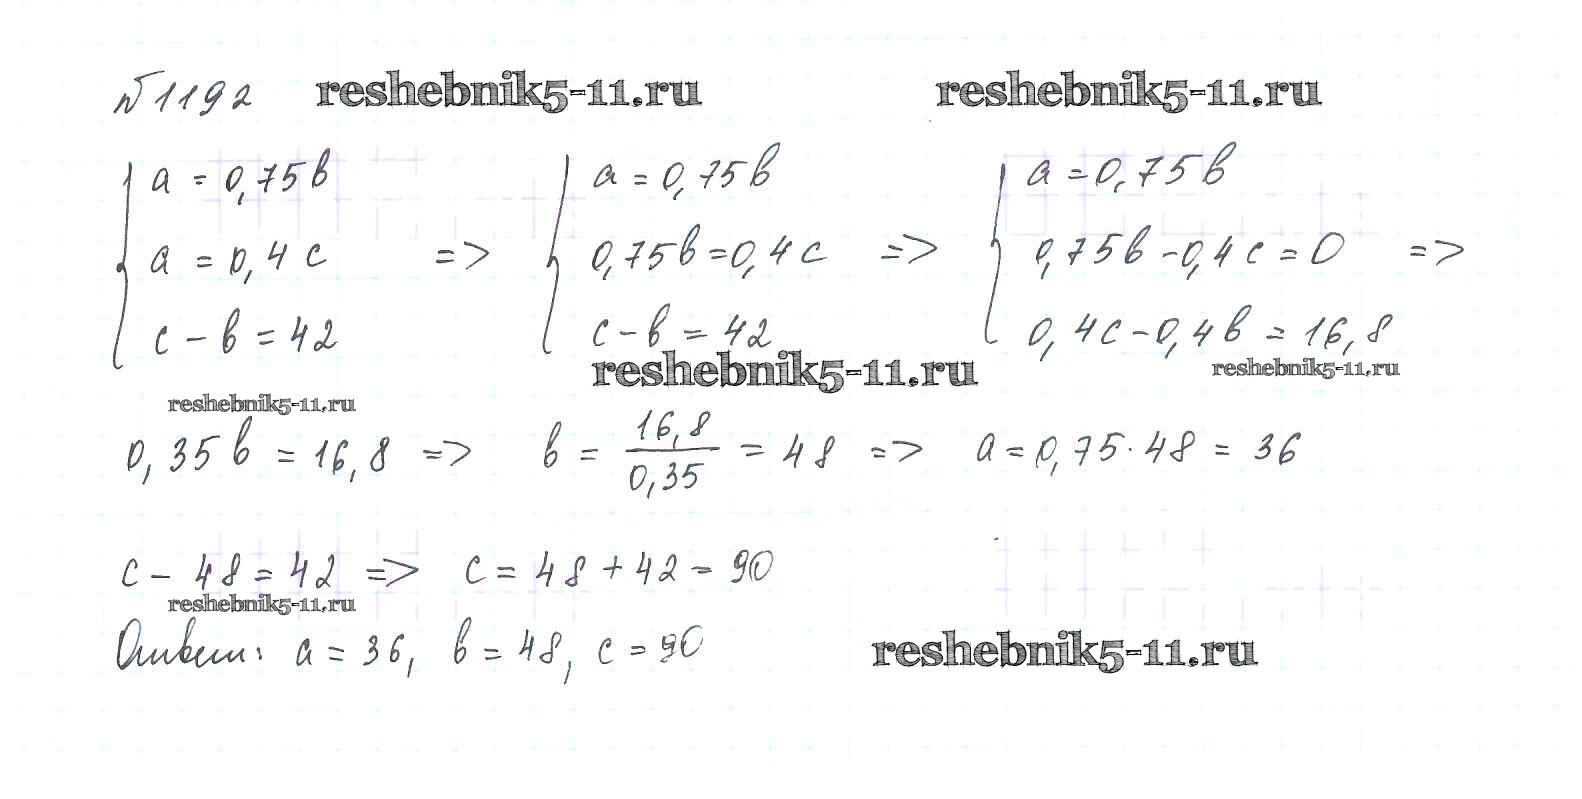 №1192 reshebnik5-11.ru reshebnik5-11.ru
a = 0,75в a = 0,75в a = 0,75в
a = 0,4c => 0,75в = 0,4c => 0,75в - 0,4c = 0 =>
c - в = 42 c - в = 42 0,4c - 0,4в = 16,8
reshebnik5-11.ru reshebnik5-11.ru
reshebnik5-11.ru
0,35в = 16,8 => в = 16,8/0,35 = 48 => a = 0,75 · 48 = 36
c - 48 = 42 => c = 48 + 42 = 90
reshebnik5-11.ru
Ответ: a = 36, в = 48, c = 90 reshebnik5-11.ru